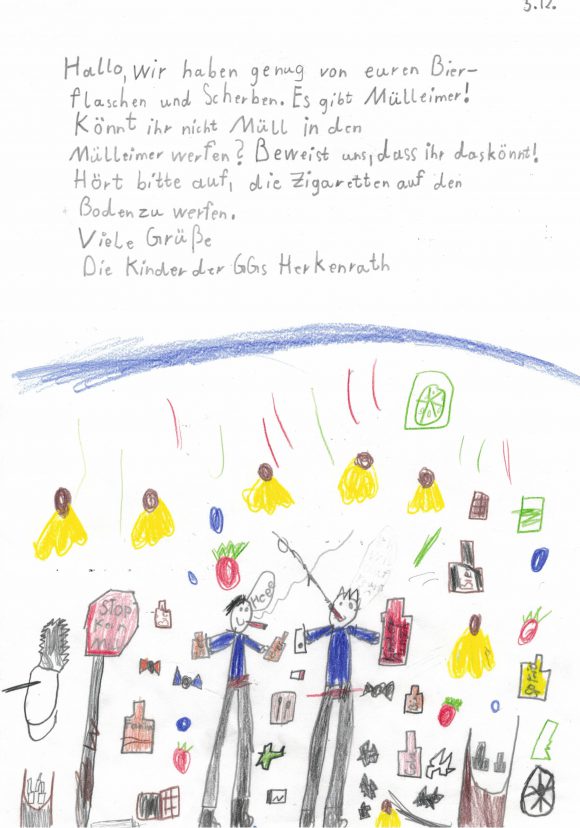 3.12.
Hallo, wir haben genug von euren Bier-
flaschen und Scherben. Es gibt Mülleimer!
Könnt ihr nicht Müll in den
Mülleimer werfen? Beweist uns, dass ihr das könnt!
Hört bitte auf, die Zigaretten auf den
Boden zu werfen.
Viele Grüße
Die Kinder der GGS Herkenrath
STOP